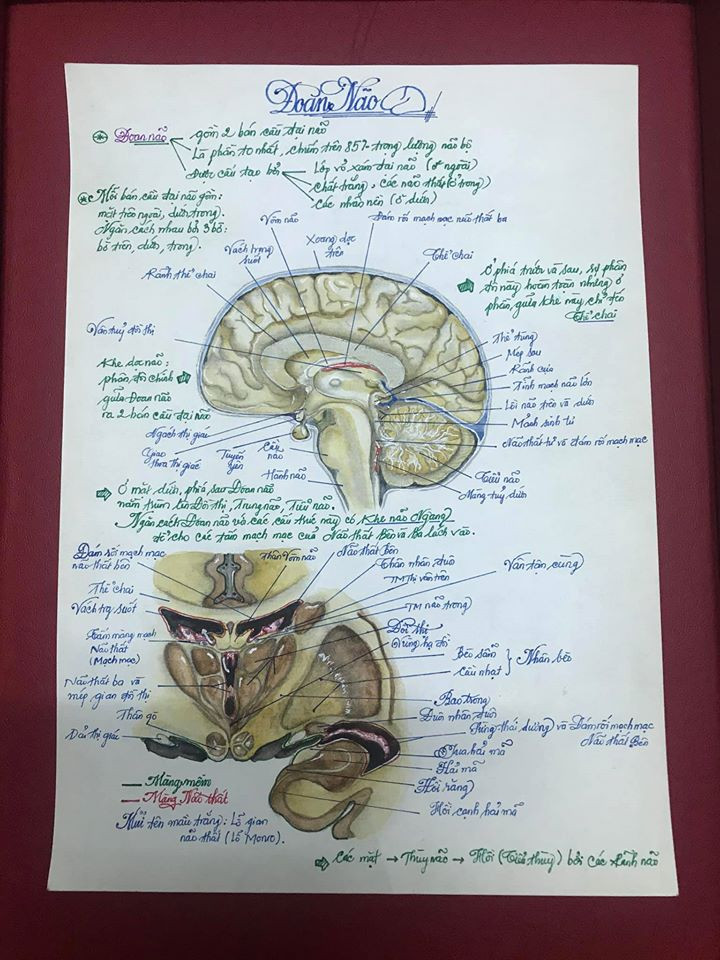 Đoan Não
Đoan não
gồm 2 bán cầu đại não
Là phần to nhất, chiếm trên 85% trọng lượng não bộ
Được cấu tạo bởi
Lớp vỏ xám đại não (ở ngoài)
Chất trắng, các não thất (ở trong)
Các nhân nền (ở dưới)
Mỗi bán cầu đại não gồm:
mặt trên ngoài, dưới, trong.
Ngăn cách nhau bởi 3 bờ:
bờ trên, dưới, trong.
Vòm não
Đám rối mạch mạc não thất ba
Vách trong suốt
Xoang dọc trên
Thể chai
Rãnh thể chai
Ở phía trước và sau, sự phân
đôi này hoàn toàn nhưng ở
phần giữa khe này, chỉ đến
Thể chai
Vân tuỷ đồi thị
Thể tùng
Mép sau
Rãnh cựa
Tĩnh mạch não lớn
Lồi não trên và dưới
Mảnh sinh tư
Não thất tư và đám rối mạch mạc
Khe dọc não:
phân đôi chính
giữa Đoan não
ra 2 bán cầu đại não
Ngách thị giác
Giao thoa thị giác
Tuyến yên
Cầu não
Hành não
Tiểu não
Màng tuỷ dưới
Ở mặt dưới, phía sau Đoan não
nằm trùm lên Đồi thị, Trung não, Tiểu não.
Ngăn cách Đoan não và các cấu trúc này có Khe não Ngang
để cho các tấm mạch mạc của Não thất Bên và Ba lách vào.
Đám rối mạch mạc
não thất bên
Thân Vòm não
Não thất Bên
Thân nhân đuôi
TM Thị vân trên
Vân tận cùng
Thể chai
Vách trg suốt
TM não trong
Tấm màng mạch
Não thất
(Mạch mạc)
Đồi thị
Vùng hạ đồi
Bèo sẫm
Cầu nhạt
Nhân bèo
Não thất ba và
mép gian đồi thị
Thân gò
Dải thị giác
Bao trong
Đuôi nhân đuôi
Sừng thái dương và Đám rối mạch mạc
Não thất Bên
Tua hải mã
Hải mã
Hồi răng
Hồi cạnh hải mã
Màng mềm
Màng Não thất
Mũi tên màu trắng: Lỗ gian
não thất (Lỗ Monro).
Các mặt → Thùy não → Hồi (Tiểu thuỳ) bởi các Rãnh não